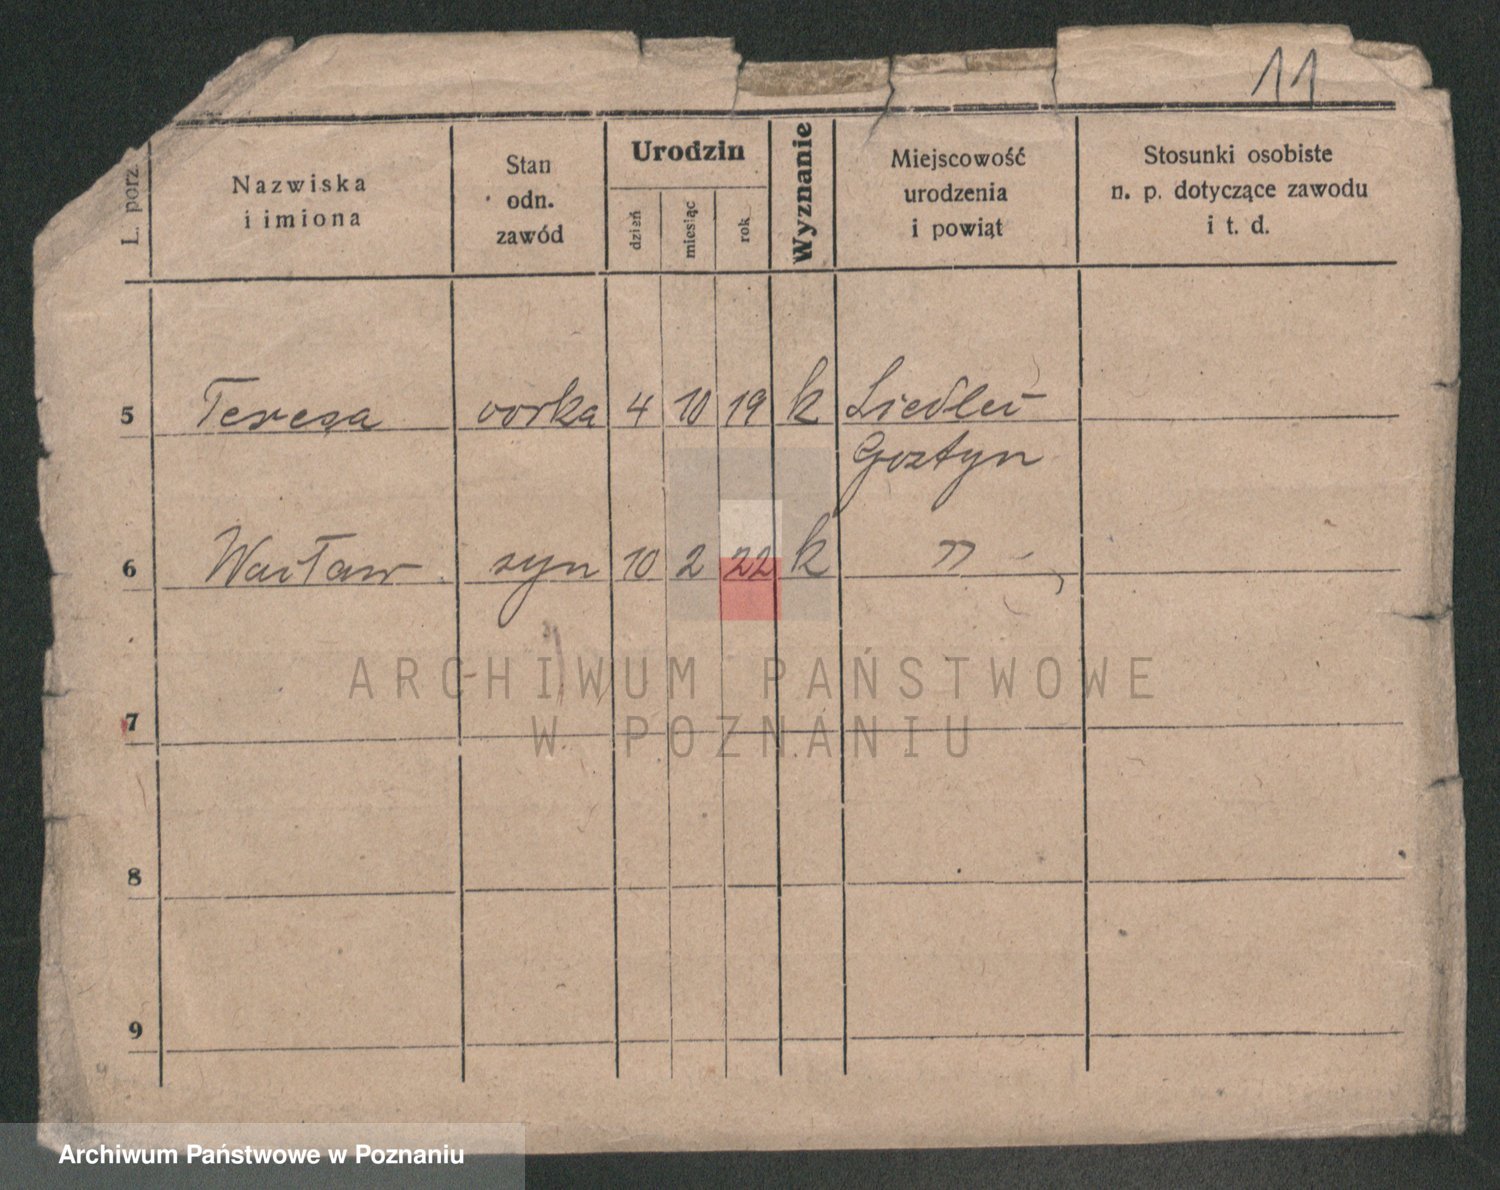 11
L. porz.
Nazwiska
i imiona
Stan
odn.
zawód
Urodzin
dzień
miesiąc
rok
Wyznanie
Miejscowość
urodzenia
i powiąt
Stosunki osobiste
n. p. dotyczące zawodu
i t. d.
5 Teresa 4 10 19 k
Gostyn
6 Wacław syn 10 2 22 k " -
7
8
9
ARCHIWUM PAŃSTWOWE
W POZNANIU
Archiwum Państwowe w Poznaniu